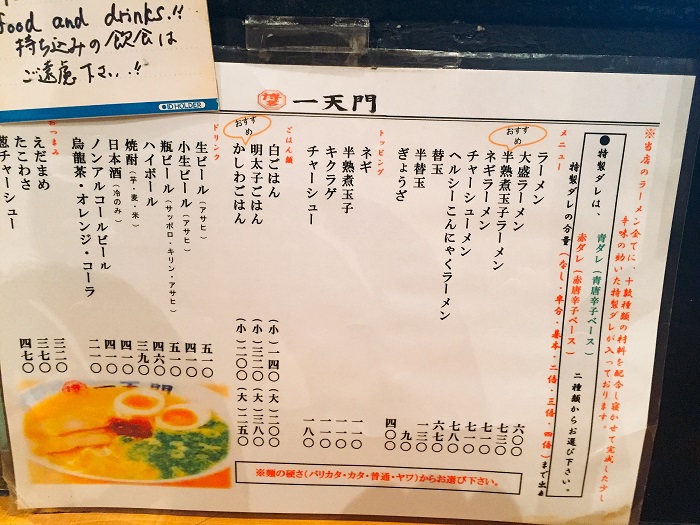 food and drinks.!!
持ち込みの飲食は
ご遠慮下さい..!!
ID HOLDER
博多 一天門
※当店のラーメン全てに、十数種類の材料を配合し寝かせて完成した少し
辛味の効いた特製ダレが入っております。
●特製ダレは、青ダレ(青唐辛子ペース) 二種類からお選び下さい。
赤ダレ(赤唐辛子ペース)
特製ダレの分量(なし・半分・基本・二倍・三倍・四倍)まで出
メニュー
ラーメン 六〇〇
大盛ラーメン 七三〇
おすすめ
半熟煮玉子ラーメン 七一〇
ネギラーメン 七一〇
チャーシューメン 七八〇
ヘルシーこんにゃくラーメン 六七〇
替玉 一三〇
半替玉 九〇
ぎょうざ 四〇〇
トッピング
ネギ 一一〇
半熟煮玉子 一一〇
キクラゲ 一一〇
チャーシュー 一八〇
ごはん類
白ごはん (小)一四〇 (大)二〇〇
明太子ごはん (小)三三〇 (大)三八〇
おすすめ
かしわごはん (小)二〇〇 (大)二五〇
ドリンク
生ビール(アサヒ) 五一〇
小生ビール(アサヒ) 四一〇
瓶ビール(サッポロ・キリン・アサヒ) 五一〇
ハイボール 四六〇
焼酎(芋・麦・米) 三九〇
日本酒(冷のみ) 四一〇
ノンアルコールビール 四一〇
烏龍茶・オレンジ・コーラ 二一〇
おつまみ
えだまめ 三二〇
たこわさ 三七〇
葱チャーシュー 四七〇
※麺の硬さ(バリカタ・カタ・普通・ヤワ)からお選び下さい。
一天門